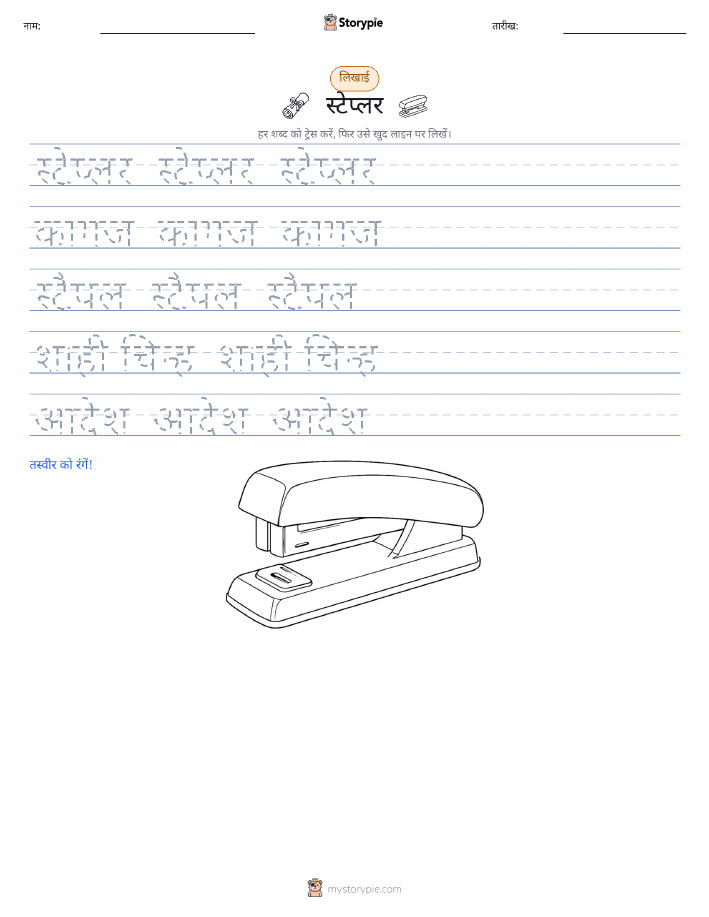 नाम:
Storypie
तारीख:
लिखाई
स्टेप्लर
हर शब्द को ट्रेस करें, फिर उसे खुद लाइन पर लिखें।
स्टेप्लर स्टेप्लर स्टेप्लर
कागज कागज कागज
स्टैपल स्टैपल स्टैपल
शाही चिन्ह शाही चिन्ह
आदेश आदेश आदेश
तस्वीर को रंगें!
mystorypie.com